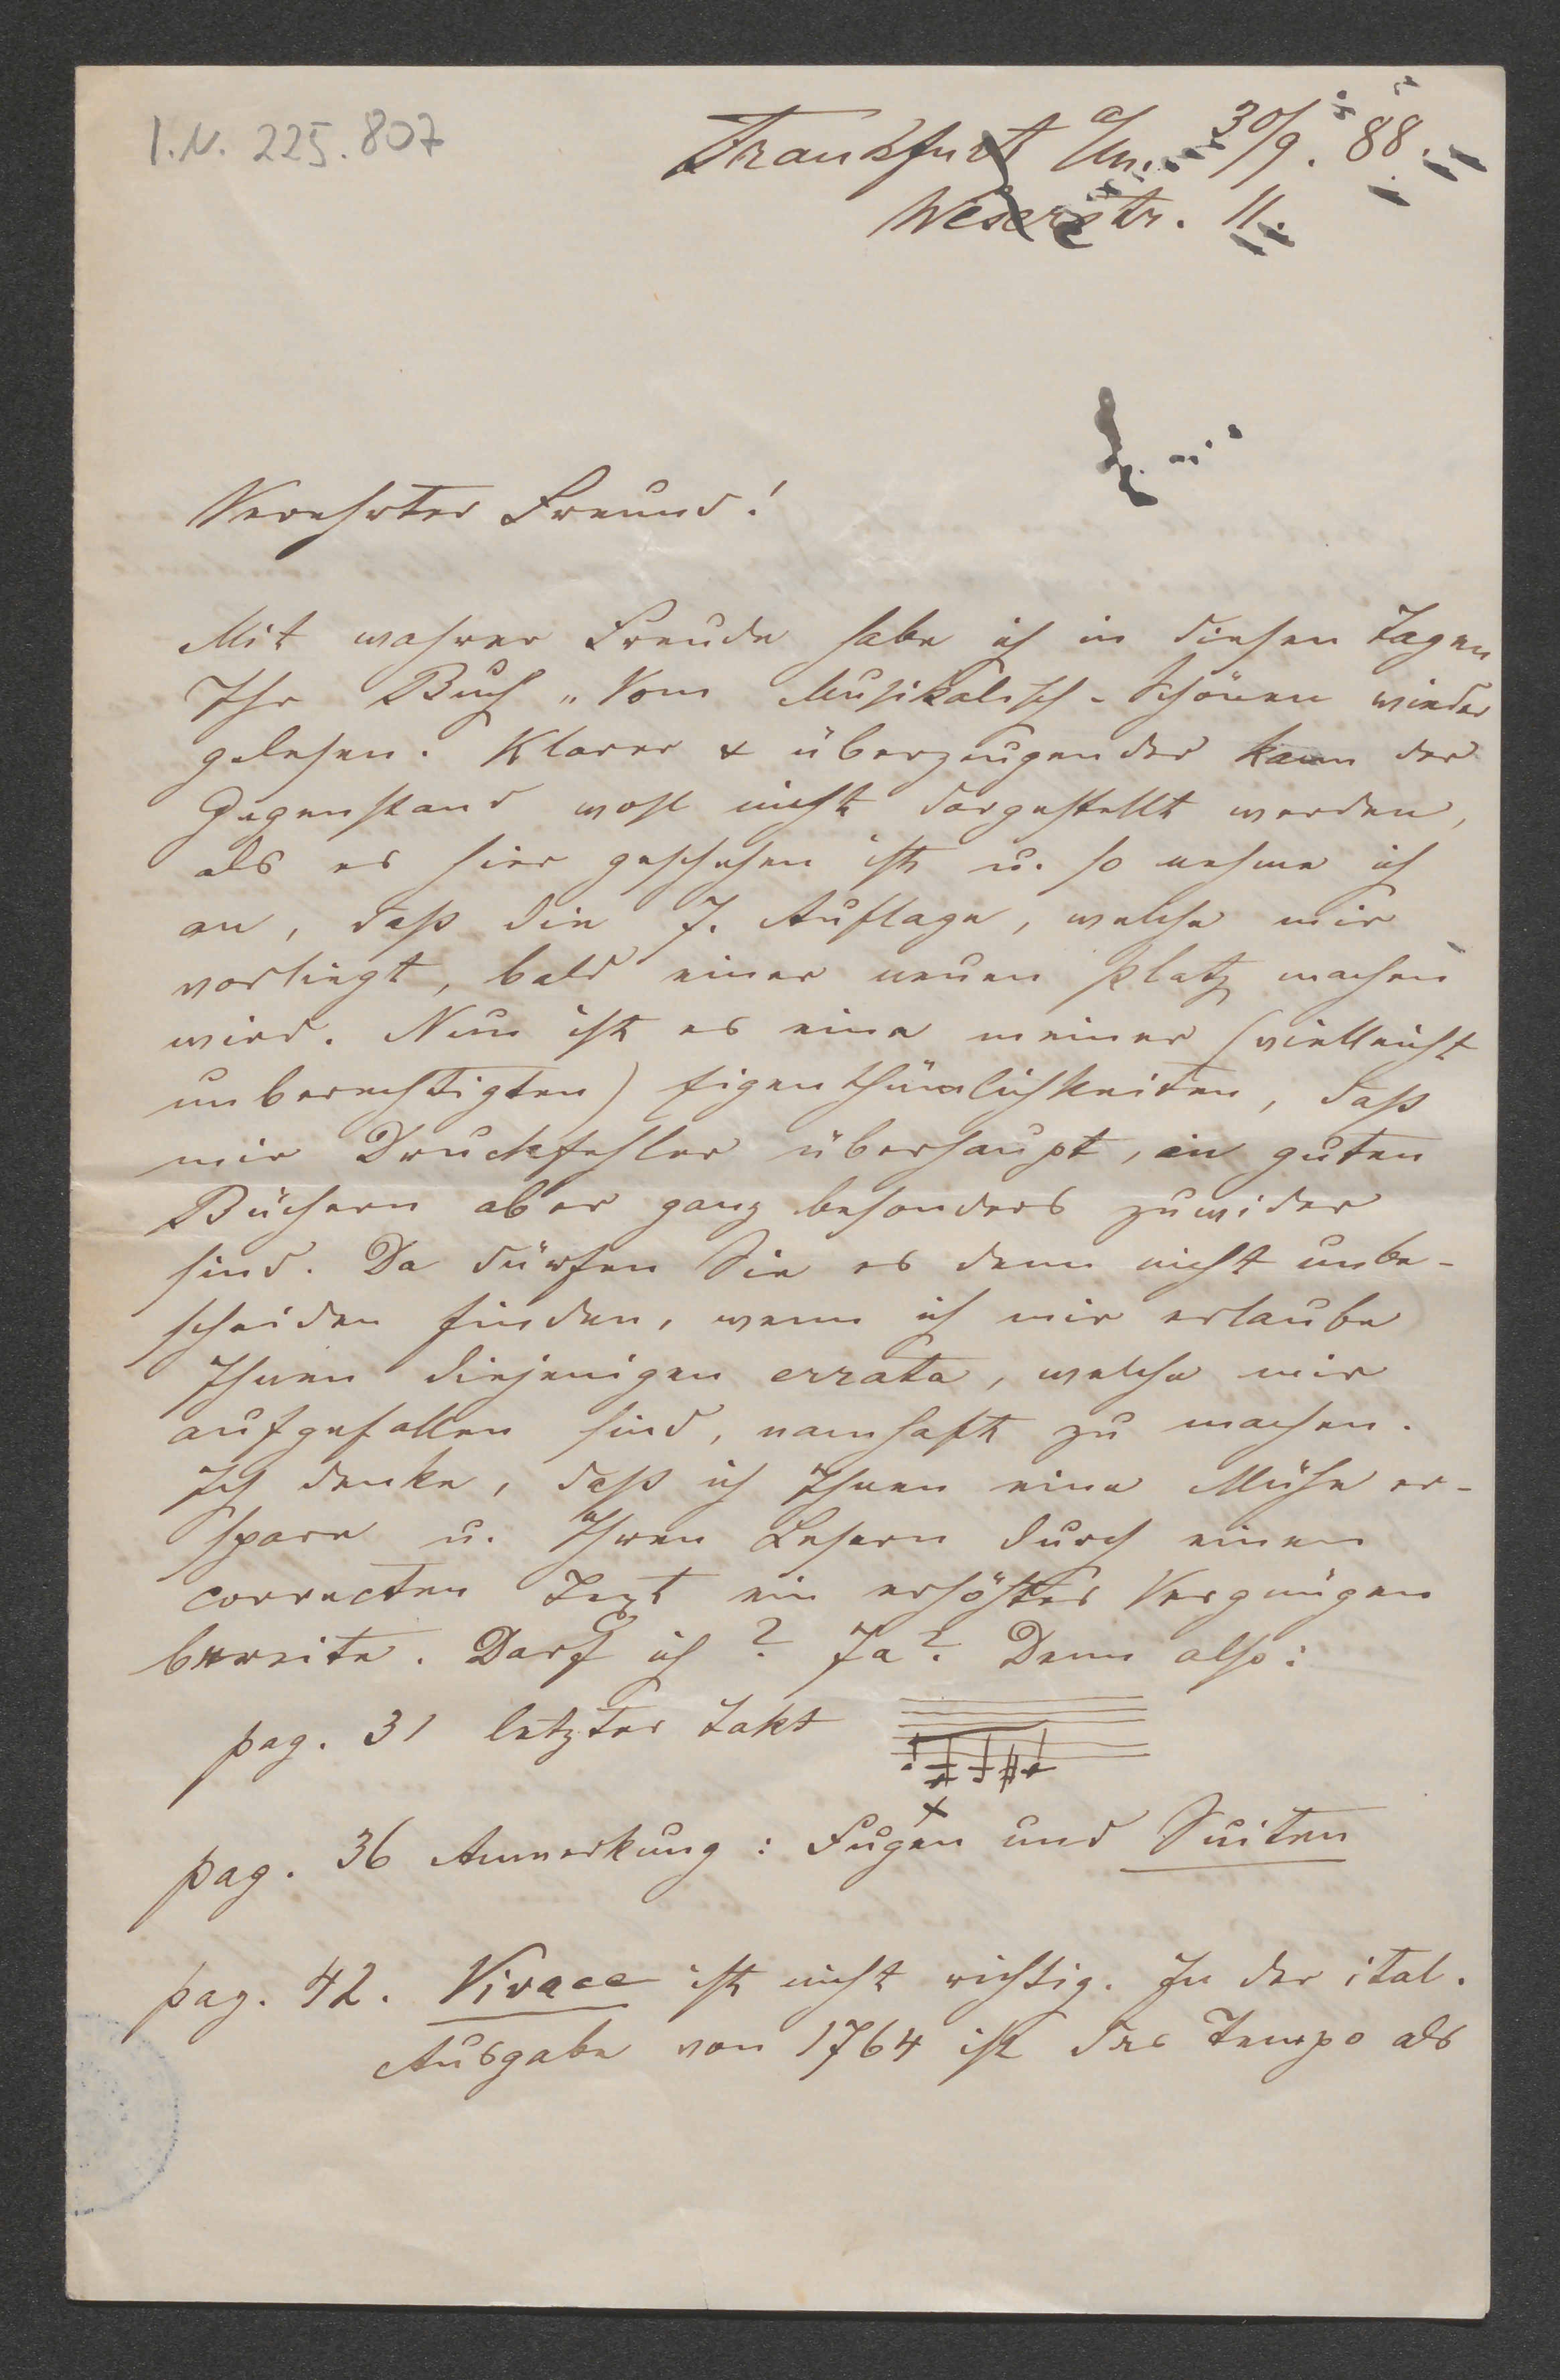 I.N. 225.807
Frankfurt a/M. 30/9. 88.
Weserstr. 11.
Verehrter Freund!
Mit wahrer Freude habe ich in diesen Tagen
Ihr Buch „Vom Musikalisch-Schönen wieder
gelesen. Klarer & überzeugender kann der
Gegenstand wohl nicht dargestellt werden,
als es hier geschehen ist u. so nehme ich
an, daß die 7. Auflage, welche mir
vorliegt, bald einer neuen Platz machen
wird. Nun ist es eine meiner (vielleicht
unberechtigten) Eigenthümlichkeiten, daß
mir Druckfehler überhaupt, in guten
Büchern aber ganz besonders zuwider
sind. Da dürfen Sie es denn nicht unbe-
scheiden finden, wenn ich mir erlaube
Ihnen diejenigen errata, welche mir
aufgefallen sind, namhaft zu machen.
Ich denke, daß ich Ihnen eine Mühe er-
spare u. Ihren Lesern durch einen
correcten Text ein erhöhtes Vergnügen
bereite. Darf ich? Ja? Denn also:
pag. 31 letzter Takt
pag. 36 Anmerkung: Fugen und Suiten
pag. 42. Vivace ist nicht richtig. In der ital.
Ausgabe von 1764 ist das Tempo als